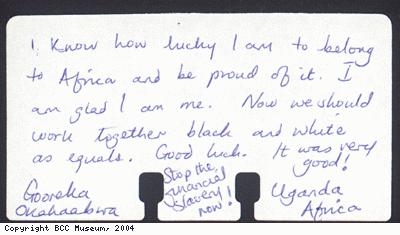 1. Know how lucky I am to belong
to Africa and be proud of it. I
am glad I am me. Now we should
work together black and white
as equals. Good luck. It was very
good!
Stop the
financial
slavery
now!
Uganda
Africa
Copyright BCC Museum, 2004